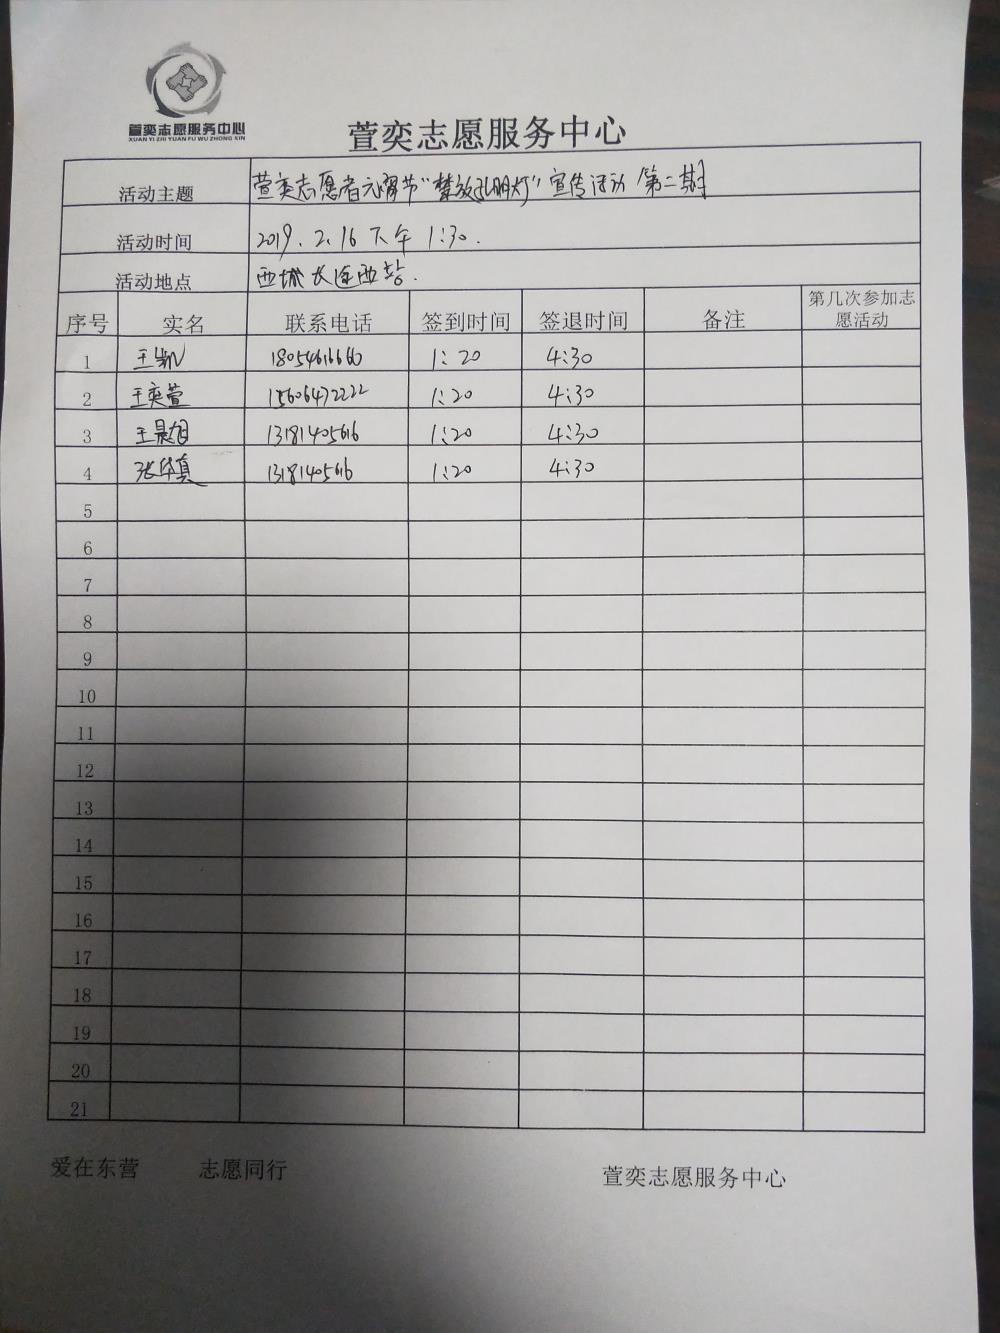 萱奕志愿服务中心
XUAN YI ZHI YUAN FU WU ZHONG XIN
萱奕志愿服务中心
活动主题 萱奕志愿者元宵节"禁放孔明灯"宣传活动 第二期
活动时间 2019.2.16 下午 1:30.
活动地点 西城长途西站.
序号 实名 联系电话 签到时间 签退时间 备注 第几次参加志愿活动
1 王凯 18054616660 1:20 4:30
2 王奕萱 15606472222 1:20 4:30
3 王晨旭 13181405616 1:20 4:30
4 张华真 13181405616 1:20 4:30
5
6
7
8
9
10
11
12
13
14
15
16
17
18
19
20
21
爱在东营 志愿同行 萱奕志愿服务中心